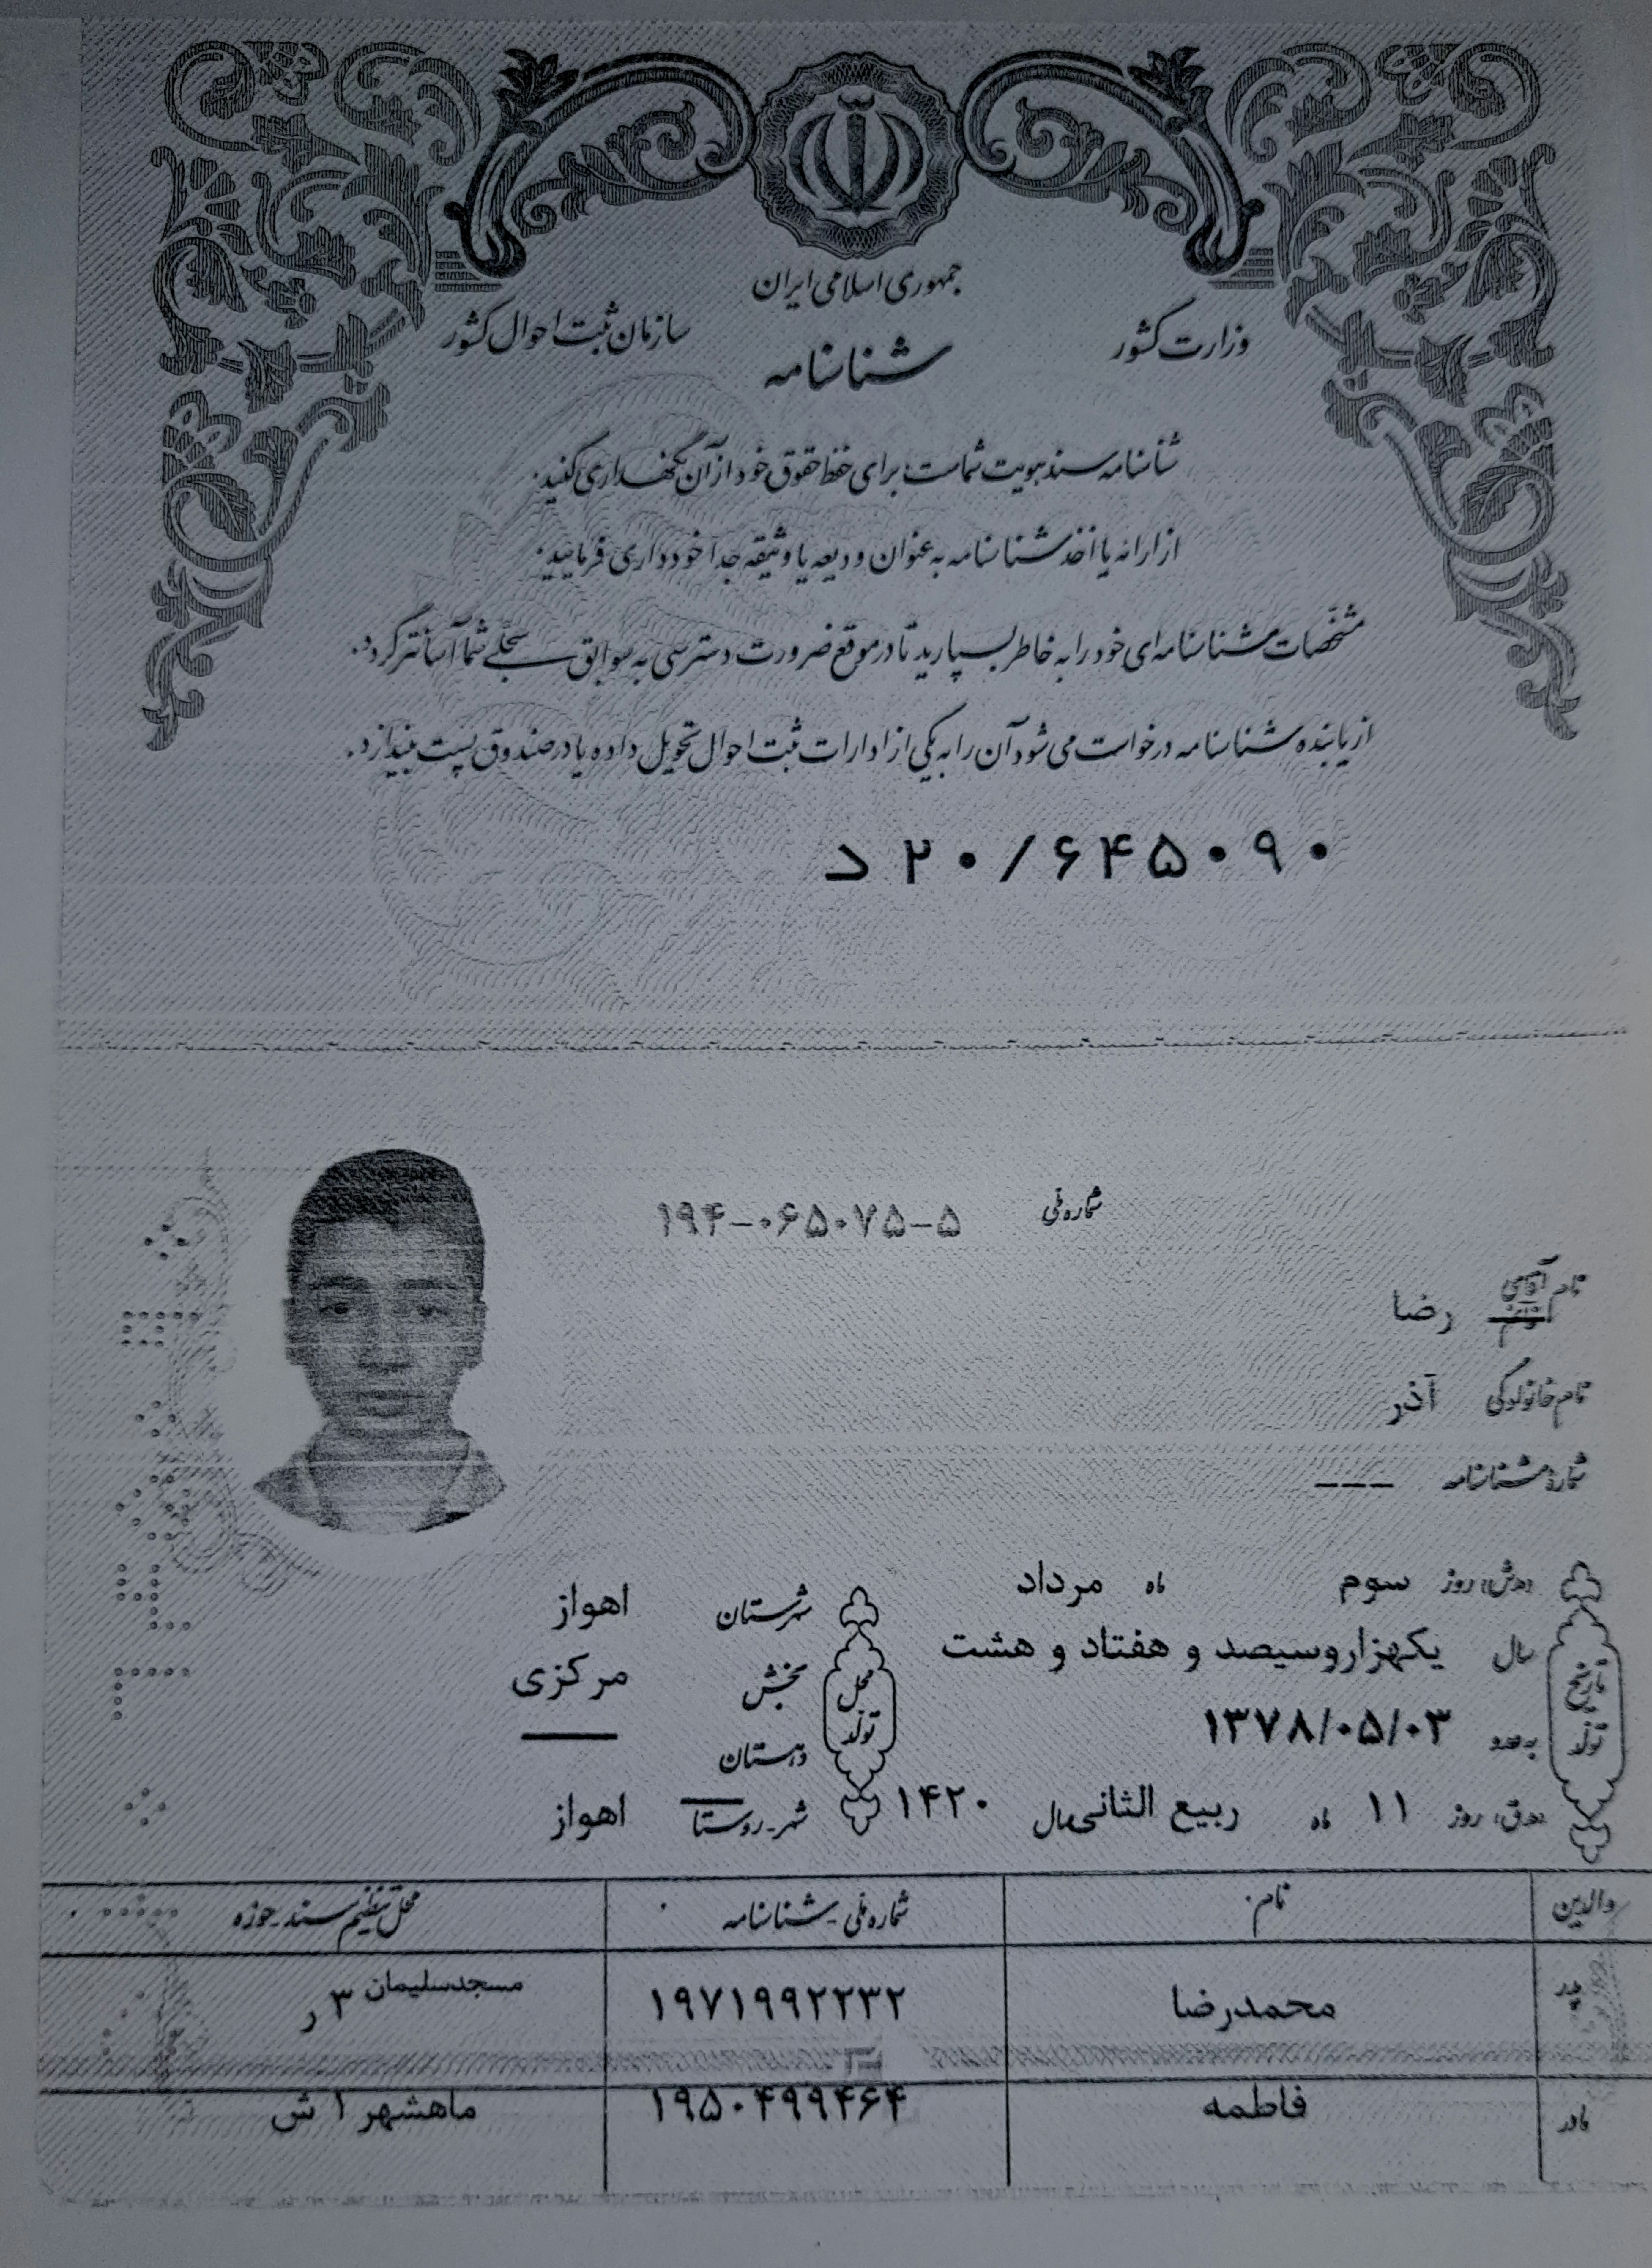 جمهوری اسلامی ایران
وزارت کشور
سازمان ثبت احوال کشور
شناسنامه
شناسنامه سند هویت شماست؛ برای حفظ حقوق خود از آن نگهداری کنید.
از ارائه یا اخذ شناسنامه به عنوان ودیعه یا وثیقه جداً خودداری فرمایید.
مشخصات شناسنامه‌ای خود را به خاطر بسپارید تا در موقع ضرورت دسترسی به سوابق سجلی شما آسانتر گردد.
از یابنده شناسنامه درخواست می‌شود آن را به یکی از ادارات ثبت احوال تحویل داده یا در صندوق پست بیندازد.
د ۲۰/۶۴۵۰۹۰
شماره ملی ۱۹۴-۰۶۵۰۷۵-۵
نام آقای خانم رضا
نام خانوادگی آذر
شماره شناسنامه ---
تاریخ تولد
(هـ.ش) روز سوم ماه مرداد
سال یکهزاروسیصد و هفتاد و هشت
به عدد ۱۳۷۸/۰۵/۰۳
(هـ.ق) روز ۱۱ ماه ربیع الثانی سال ۱۴۲۰
محل تولد
شهرستان اهواز
بخش مرکزی
دهستان ——
شهر - روستا اهواز
والدین نام شماره ملی - شناسنامه محل تنظیم سند - حوزه
پدر محمدرضا ۱۹۷۱۹۹۲۲۳۲ مسجدسلیمان ۳ ر
مادر فاطمه ۱۹۵۰۴۹۹۴۶۴ ماهشهر ۱ ش